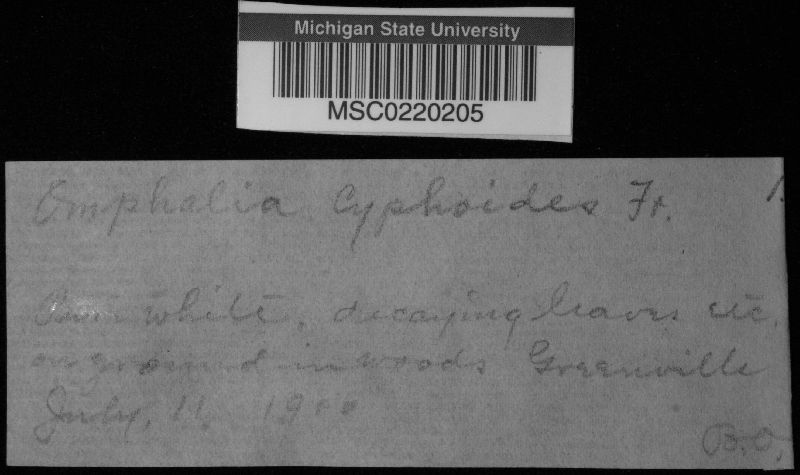 Michigan State University
MSC0220205
Omphalia Cyphoides Fr. 1.
Pure white, decaying leaves etc.
on ground in woods Greenville
July, 11, 1900
B.O.